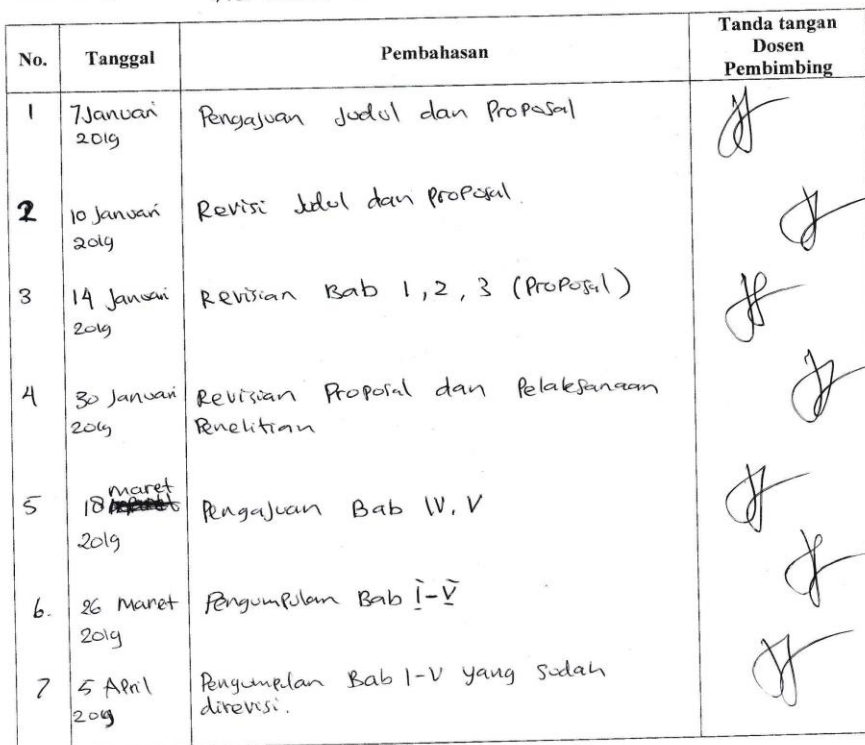 No. Tanggal Pembahasan Tanda tangan Dosen Pembimbing
1 7 Januari 2019 Pengajuan Judul dan Proposal
2 10 Januari 2019 Revisi Judul dan Proposal
3 14 Januari 2019 Revisian Bab 1, 2, 3 (Proposal)
4 30 Januari 2019 Revisian Proposal dan Pelaksanaan Penelitian
5 18 maret 2019 Pengajuan Bab IV, V
6. 26 Maret 2019 Pengumpulan Bab I-V
7 5 April 2019 Pengumpulan Bab I-V yang sudah direvisi.